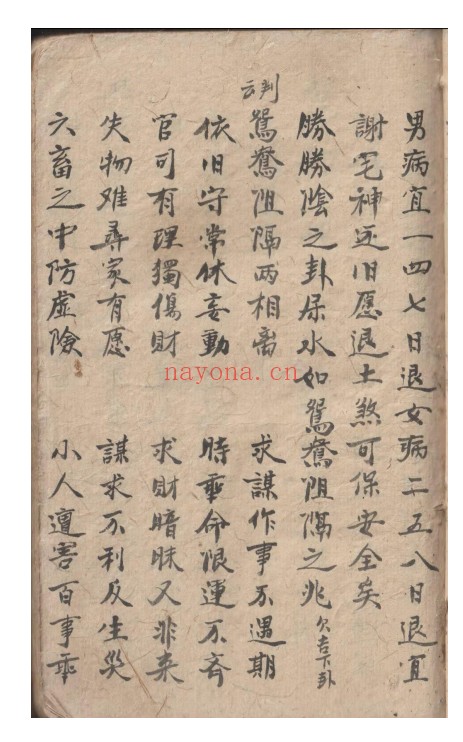 男病宜一四七日退女病二五八日退宜
謝宅神还旧愿退土煞可保安全矣
勝勝陰之卦屬水如鴛鴦阻隔之兆欠吉下卦
判云
鴛鴦阻隔两相离 求謀作事不遇期
依旧守常休妄動 時乖命限運不齐
官司有理獨傷財 求財暗昧又非来
失物难尋家有愿 謀求不利反生災
六畜之中防虚險 小人遭害百事乖
nayona.cn